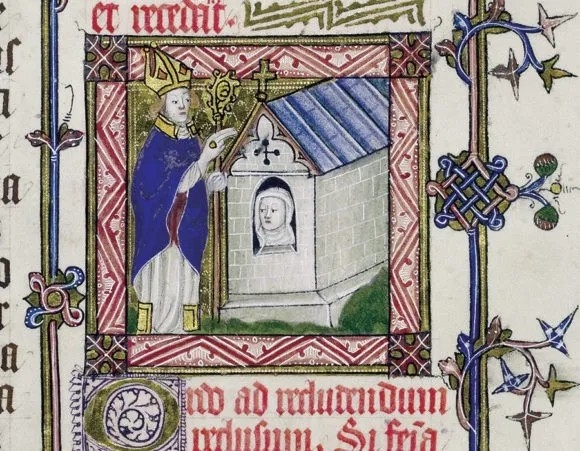 et recedāt.
Ordo ad recludendum
reclusum, Si feīa